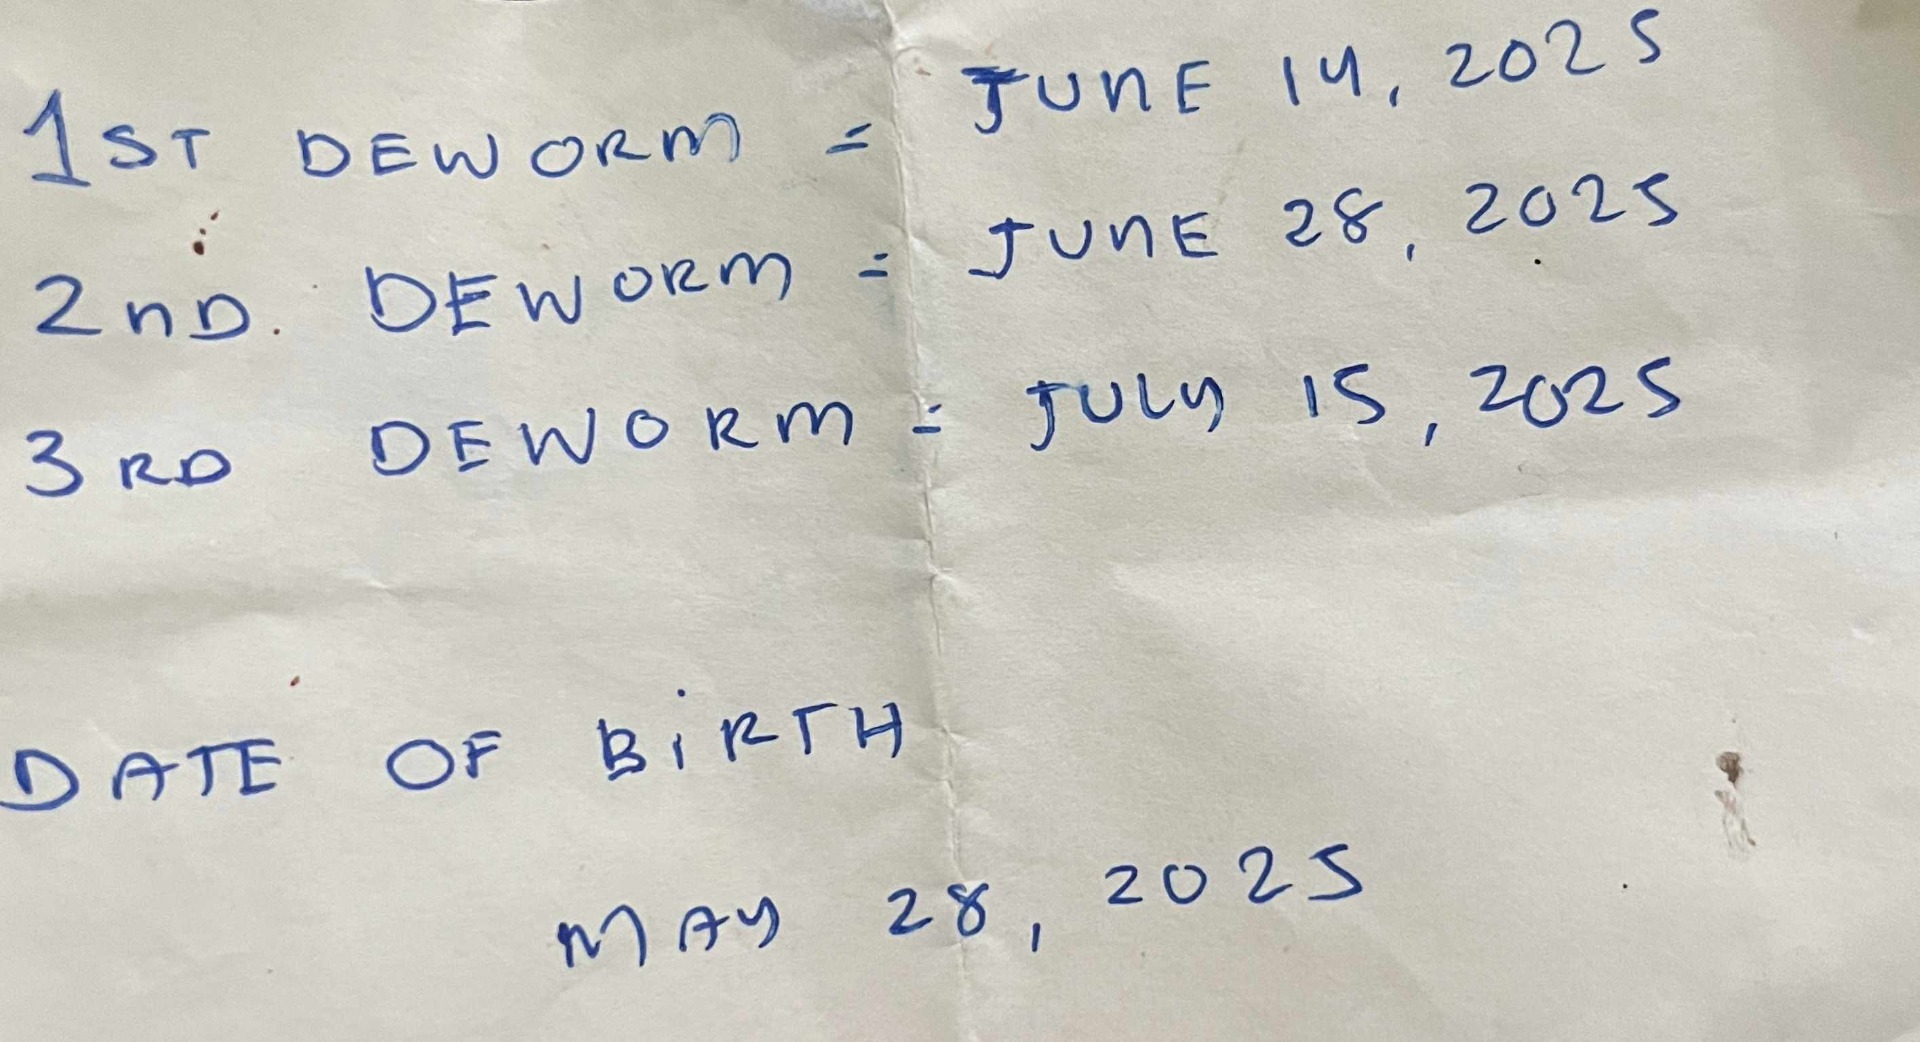 1ST DEWORM = JUNE 14, 2025
2nD. DEWORM = JUNE 28, 2025
3RD DEWORM = JULY 15, 2025
DATE OF BiRTH
MAY 28, 2025